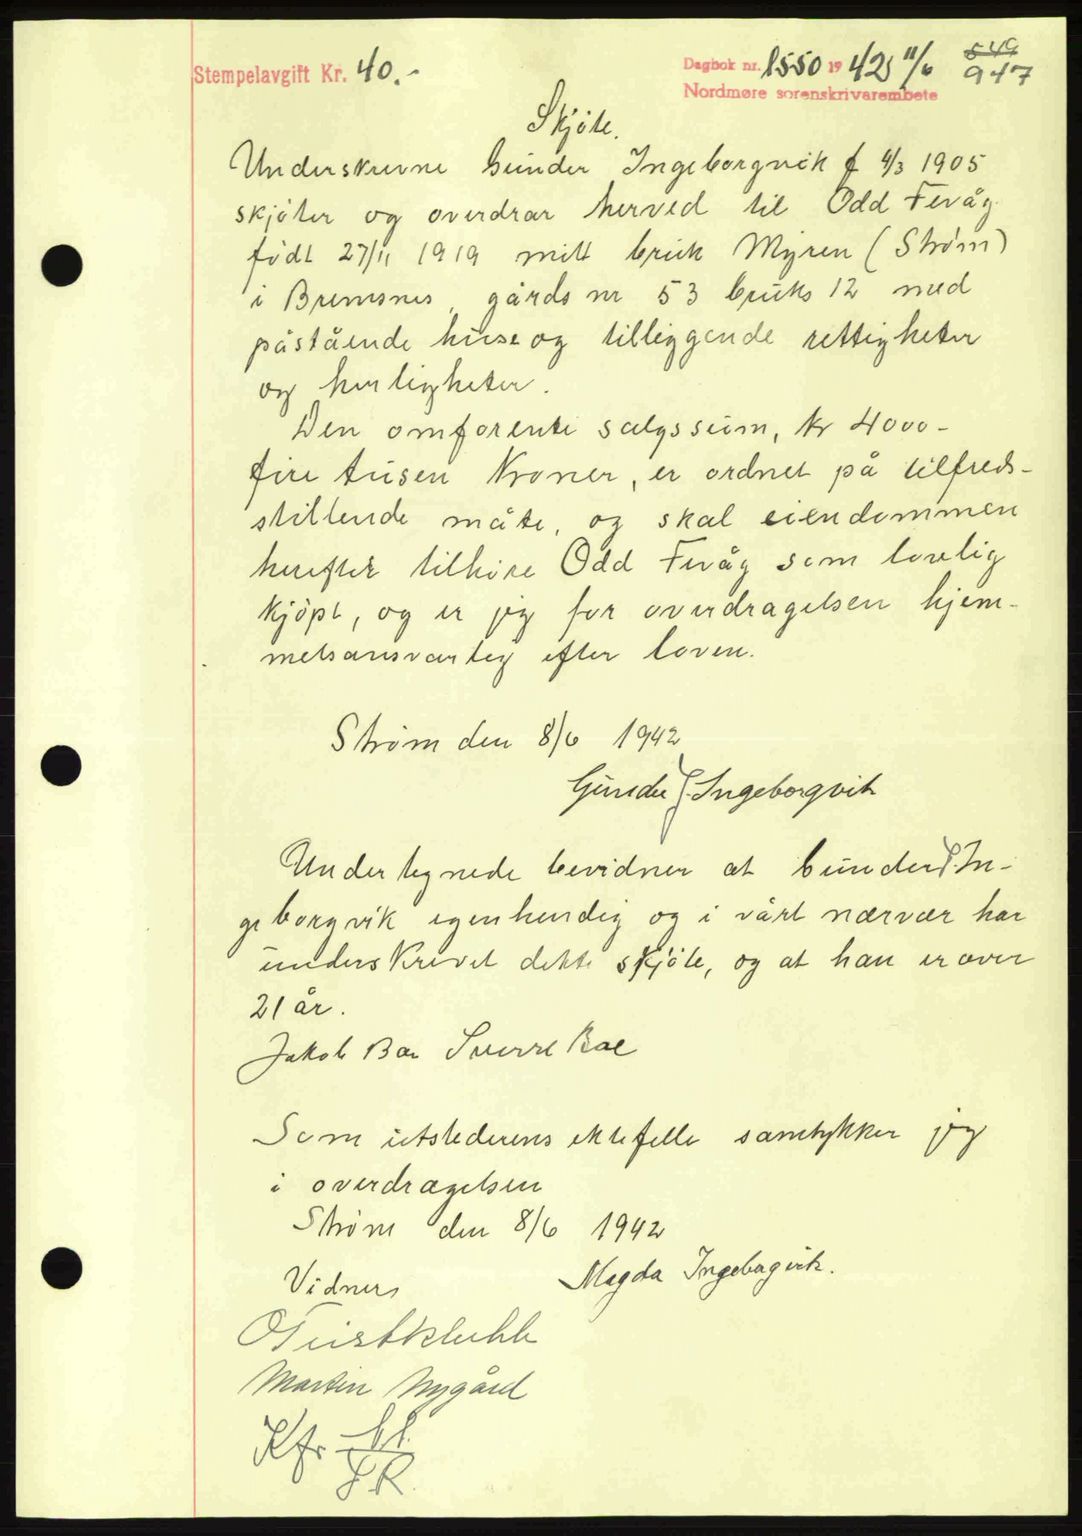 Stempelavgift Kr. 40.-
Dagbok nr. 1550 1942 11/6
Nordmøre sorenskrivarembete
549
947
Skjöte.
Underskrevne Gunder Ingeborgvik f 4/3 1905
skjöter og overdrar herved til Odd Fevåg
födt 27/11 1919 mitt bruk Myren (Strøm)
i Bremsnes, gårds nr 53 bruks 12 med
påstående huse og tilliggende rettigheter
og herligheter.
Den omforente salgssum, kr 4000-
fire tusen Kroner, er ordnet på tilfreds-
stillende måte, og skal eiendommen
herefter tilhöre Odd Fevåg som lovlig
kjöpt, og er jeg for overdragelsen hjem-
melsansvarlig efter loven.
Strøm den 8/6 1942
Gunder J. Ingeborgvik
Undertegnede bevidner at Gunder J. In-
geborgvik egenhendig og i vårt nærvær har
underskrevet dette skjöte, og at han er over
21 år.
Jakob Bae Sverre Bae
Som utstederens ektefelle samtykker jeg
i overdragelsen
Strøm den 8/6 1942
Vidner Magda Ingeborgvik.
Martin Nygård
Kfr